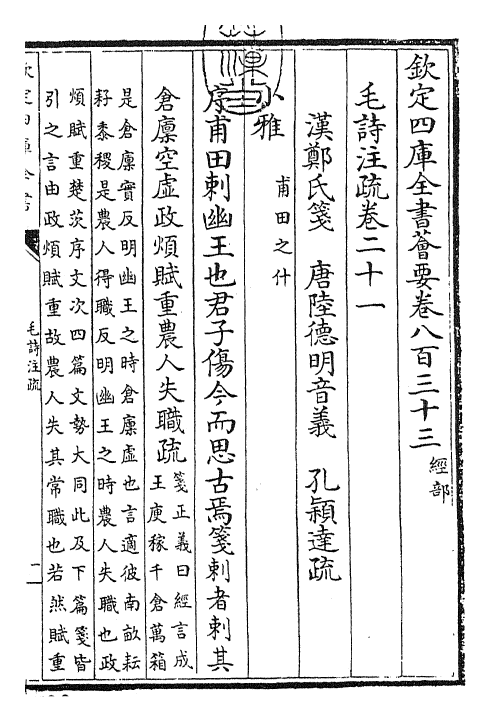 欽定四庫全書薈要卷八百三十三 經部
毛詩注疏卷二十一
漢鄭氏箋 唐陸德明音義 孔穎達疏
小雅 甫田之什
序甫田刺幽王也君子傷今而思古焉箋刺者刺其
倉廪空虛政煩賦重農人失職疏箋正義曰經言成
王庾稼千倉萬箱
是倉廪實反明幽王之時倉廪虛也言適彼南畝耘
耔黍稷是農人得職反明幽王之時農人失職也政
煩賦重楚茨序文次四篇文勢大同此及下篇箋皆
引之言由政煩賦重故農人失其常職也若然賦重
欽定四庫全書
毛詩注疏
一